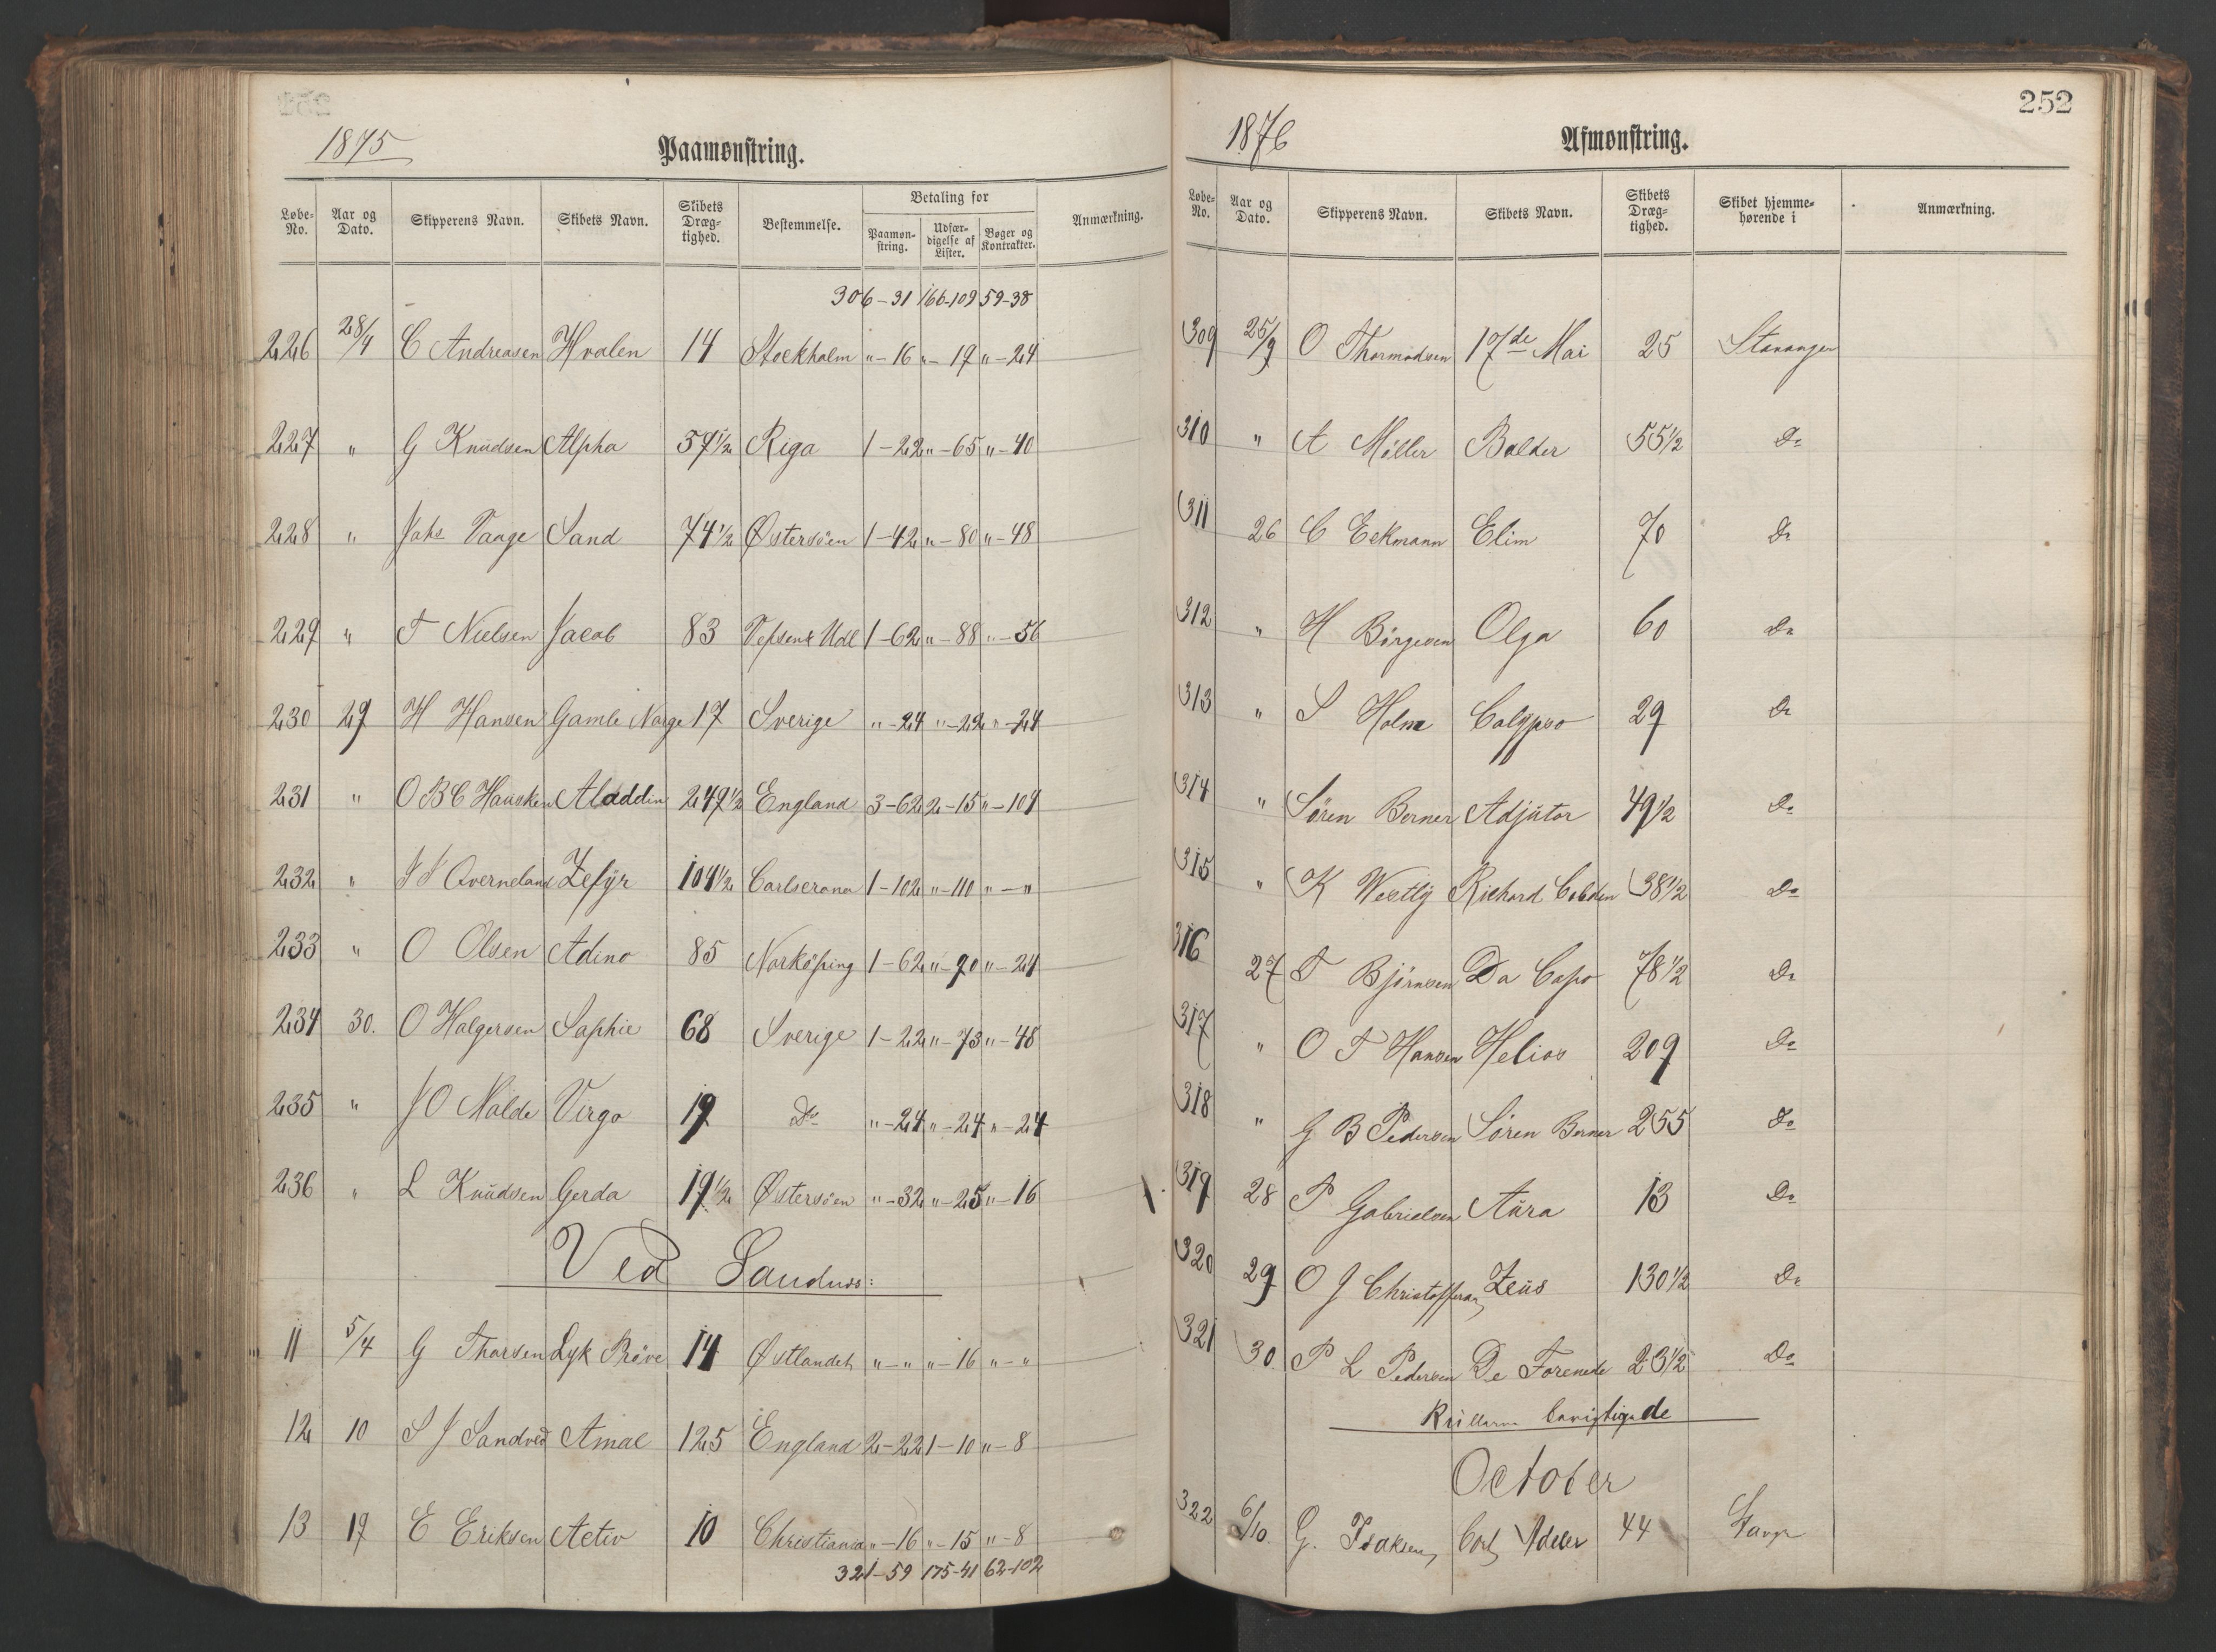 1875
Paamønstring.
Løbe-No. Aar og Dato. Skipperens Navn. Skibets Navn. Skibets Dræg-tighed. Bestemmelse. Betaling for Paamøn-string. Udfær-digelse af Lister. Bøger og Kontrakter. Anmærkning.
306-31 166-109 59-38
226 28/4 C Andreasen Hvalen 14 Stockholm "-16 "-19 "-24
227 " G Knudsen Alpha 57 1/2 Riga 1-22 "-65 "-40
228 " Jahs Vaage Sand 74 1/2 Østersøen 1-42 "-80 "-48
229 " T Nielsen Jacob 83 1-62 "-88 "-56
230 29 H Hansen Gamle Norge 17 Sverige "-24 "-22 "-24
231 " O B C Hausken Aladdin 249 1/2 England 3-62 2-15 "-104
232 " Qverneland Zefyr 104 1/2 Carlscrona 1-102 "-110 "-"
233 " O Olsen Adino 85 Norköping 1-62 "-90 "-24
234 30. O Halgersen Sophie 68 Sverige 1-22 "-73 "-48
235 " J O Nalde Virgo 19 Do "-24 "-24 "-24
236 " L Knudsen Gerda 19 1/2 Østersøen "-32 "-25 "-16
Ved Sandnes:
11 5/4 G Thorsen Lyk Prøve 14 Østlandet "-" "-16 "-"
12 10 S J Sandved Amal 125 England 2-22 1-10 "-8
13 19 E Eriksen Activ 10 Christiania "-16 "-15 "-8
321-59 175-41 62-102
252
1876
Afmønstring.
Løbe-No. Aar og Dato. Skipperens Navn. Skibets Navn. Skibets Dræg-tighed. Skibet hjemme-hørende i Anmærkning.
309 25/9 O Thormodsen 17de Mai 25 Stavanger
310 " A Møller Balder 55 1/2 Do
311 26 C Eckmann Elim 70 Do
312 " H Børgesen Olga 60 Do
313 " S Holm Calypso 29 Do
314 " Søren Berner Adjutor 49 1/2 Do
315 " K Westly Richard Cobden 38 1/2 Do
316 27 T Bjørnsen Da Capo 78 1/2 Do
317 " O T Hansen Helios 209 Do
318 " G B Pedersen Søren Berner 255 Do
319 28 P Gabrielsen Aura 13 Do
320 29 O J Christoffersen Zeus 130 1/2 Do
321 30 P L Pedersen De Forenede 23 1/2 Do
October
322 6/10 G. Isaksen Cort Adeler 44 Stavgr